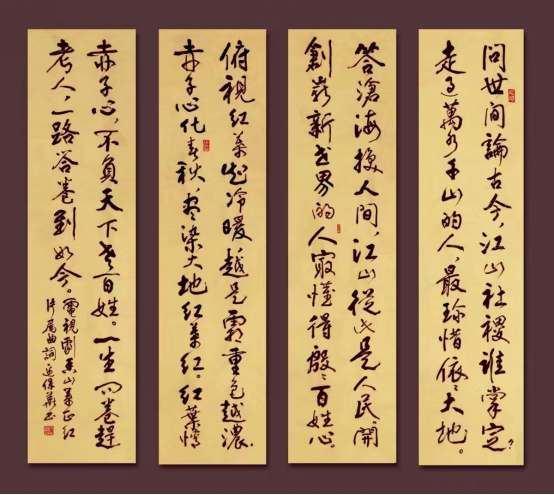 問世間論古今,江山社稷誰掌定?
走過萬水千山的人,最珍惜依依大地。
答滄海換人間,江山從此是人民。開
創嶄新世界的人最懂得殷殷百姓心。
俯視紅葉知冷暖越是霜重色越濃。
赤子心化春秋,盡染大地紅葉紅。紅葉情
赤子心,不負天下老百姓。一生問卷趕
考人,一路答卷到如今。
電視劇香山葉正紅
片尾曲詞